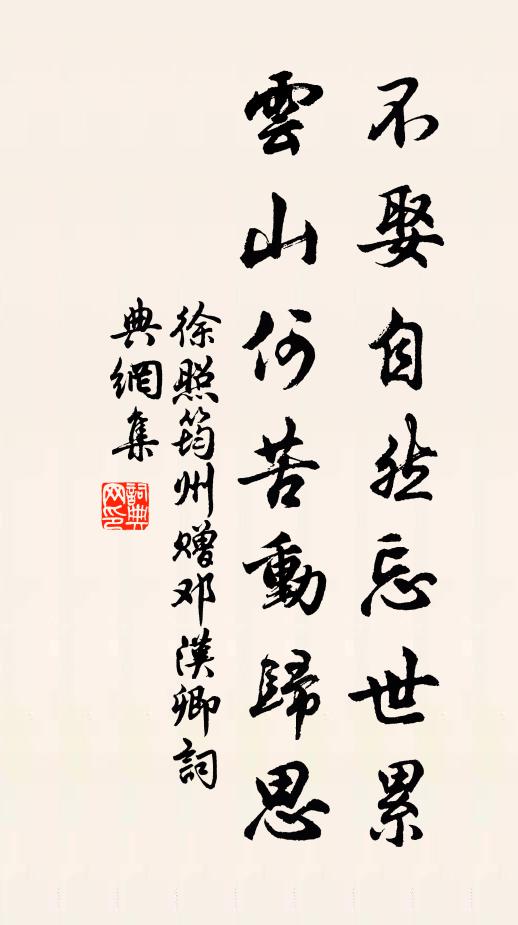 不娶自然忘世累
雲山何苦動歸思
徐照筠州贈邓漢卿詞
典網集
詞典网印